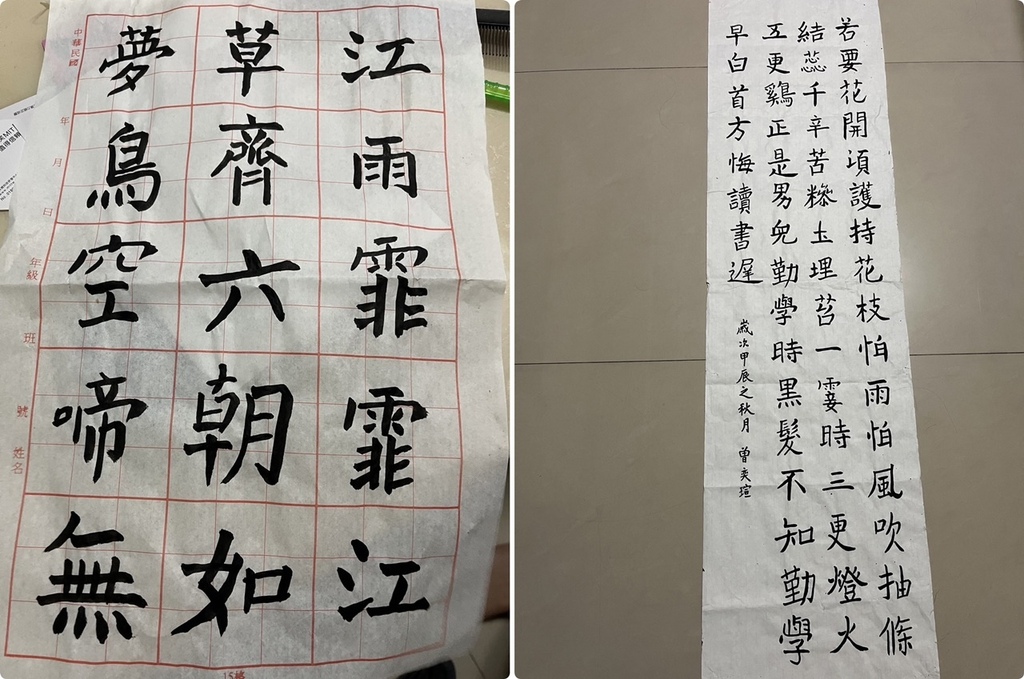 江雨霏霏江
草齊六朝如
夢鳥空啼無
中華民國 年 月 日 年級 班 號 姓名
若要花開項護持花枝怕雨怕風吹抽條
結蕊千辛苦糝土埋苔一霎時三更燈火
五更鷄正是男兒勤學時黑髮不知勤學
早白首方悔讀書遲
歲次甲辰之秋月 曾奕瑄